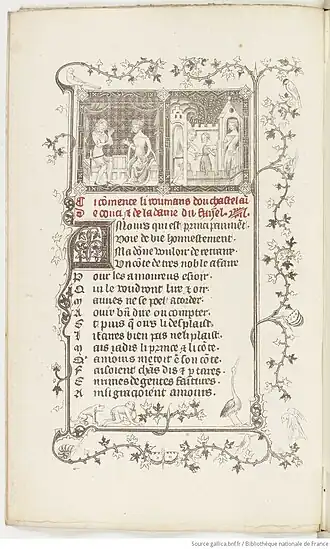 Ci cōmence li roumans dou chastelai
De couci & de la dame du faijel.
Amours qui est principaumēt
Voie de vie honnestement
Ma dōne vouloir de retraire
Un cōte de tres noble afaire
Pour les amoureus esioir
Qui le voudront lire & oir
aunes ne se poet acorder
A ouir bñ dire ou compter
Et puis q̄ ours li desplaist
Il rares bien pas ne li plaist
Mais iadis li prince & li cōte
amours metoit ē son cōte
Faisoient chās dis & p tures
E rimes de gentes faitures
Ainsi gracioient amours
Source gallica.bnf.fr / Bibliothèque nationale de France